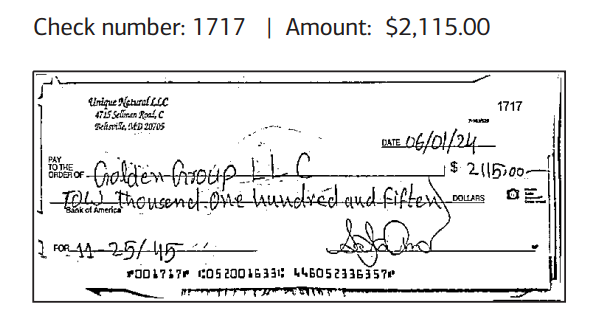 Check number: 1717 | Amount: $2,115.00
Unique Natural LLC
4715 Sellman Road, C
Beltsville, MD 20705
1717
DATE 06/01/24
PAY TO THE ORDER OF Golden Group LLC $ 2115.00
Tow Thousend One hundred and Fifteen DOLLARS
Bank of America
FOR 11-25/45
⑈001717⑈ ⑆052001633⑆ 446052336357⑈